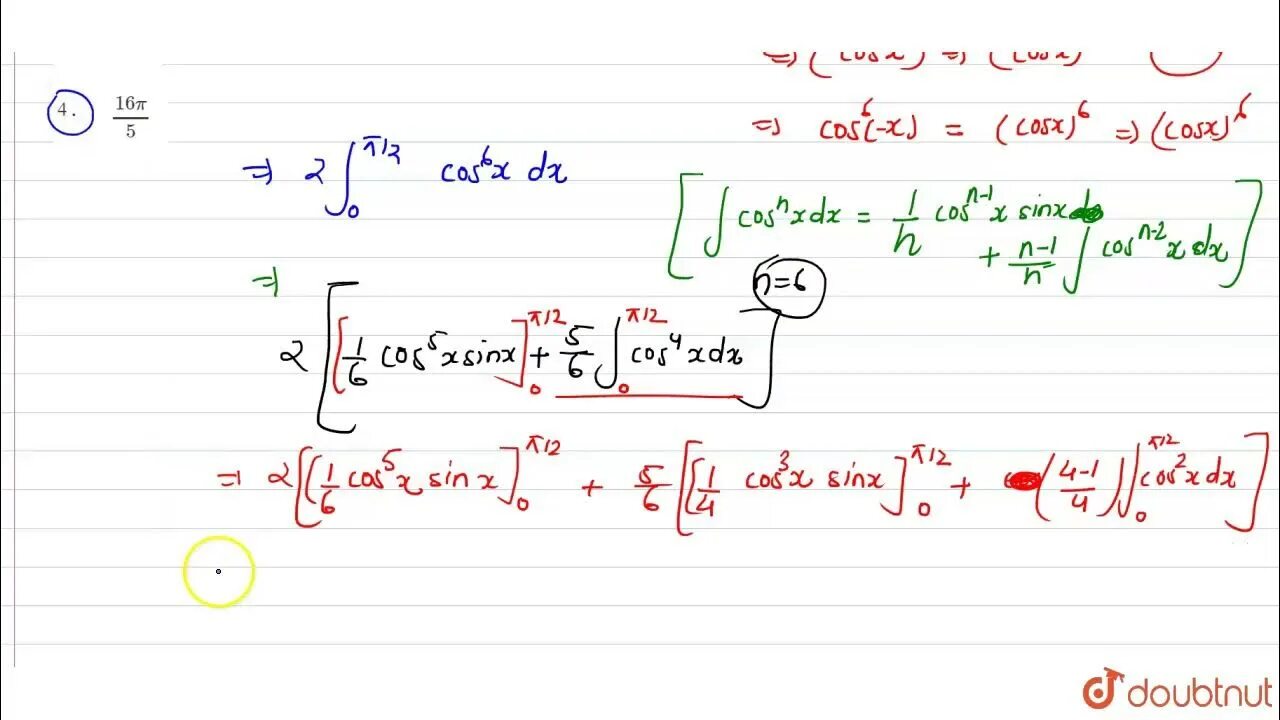 ⇒ (cosx) ⇒ (cosx)
4. 16π/5
⇒ cos⁶(-x) = (cosx)⁶ ⇒ (cosx)⁶
⇒ 2∫₀^{π/2} cos⁶x dx
[∫cosⁿxdx = 1/n cosⁿ⁻¹x sinx
+ n-1/n ∫cosⁿ⁻²x dx]
⇒
n=6
2[[1/6 cos⁵xsinx]₀^{π/2} + 5/6 ∫₀^{π/2} cos⁴xdx]
⇒ 2[[1/6 cos⁵x sinx]₀^{π/2} + 5/6 [[1/4 cos³x sinx]₀^{π/2} + (4-1/4)∫₀^{π/2} cos²x dx]
doubtnut